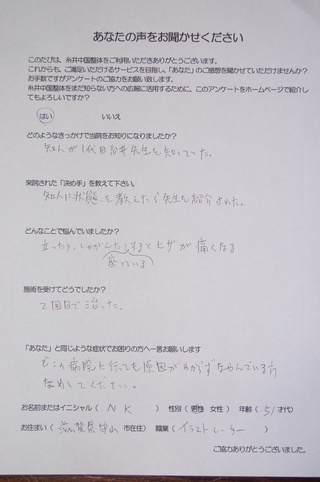 あなたの声をお聞かせください
このたびは、糸井中国整体をご利用いただきありがとうございます。
これからも、ご満足いただけるサービスを目指し、「あなた」のご感想を聞かせていただけませんか?
お手数ですがアンケートのご協力をお願い致します。
糸井中国整体をまだ知らない方への広報に活用するために、このアンケートをホームページで紹介し
てもよろしいですか?
はい いいえ
どのようなきっかけで当院をお知りになりましたか?
知人が1代目 先生を知ってった。
来院された「決め手」を教えて下さい。
知人に状態を教えたら先生を紹介された。
どんなことで悩んでいましたか?
立ったり、しゃがんだりするとヒザが痛くなる
座っている
施術を受けてどうでしたか?
2回目で治った。
「あなた」と同じような症状でお困りの方へ一言お願いします
どこの病院に行っても原因がわからずなやんでいる方
ためしてください。
お名前またはイニシャル( N K ) 性別(男性 女性) 年齢(51才代)
お住まい(滋賀県守山 市在住) 職業(イラストレーター)
ご協力ありがとうございました。